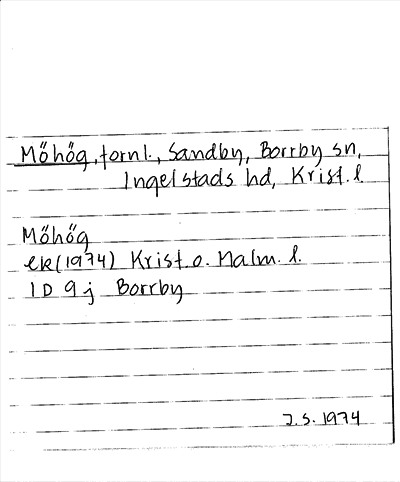 Möhög, fornl., Sandby, Borrby sn,
Ingelstads hd, Krist. l
Möhög
ek (1974) Krist. o. Malm. l.
1D 9j Borrby
J.S. 1974